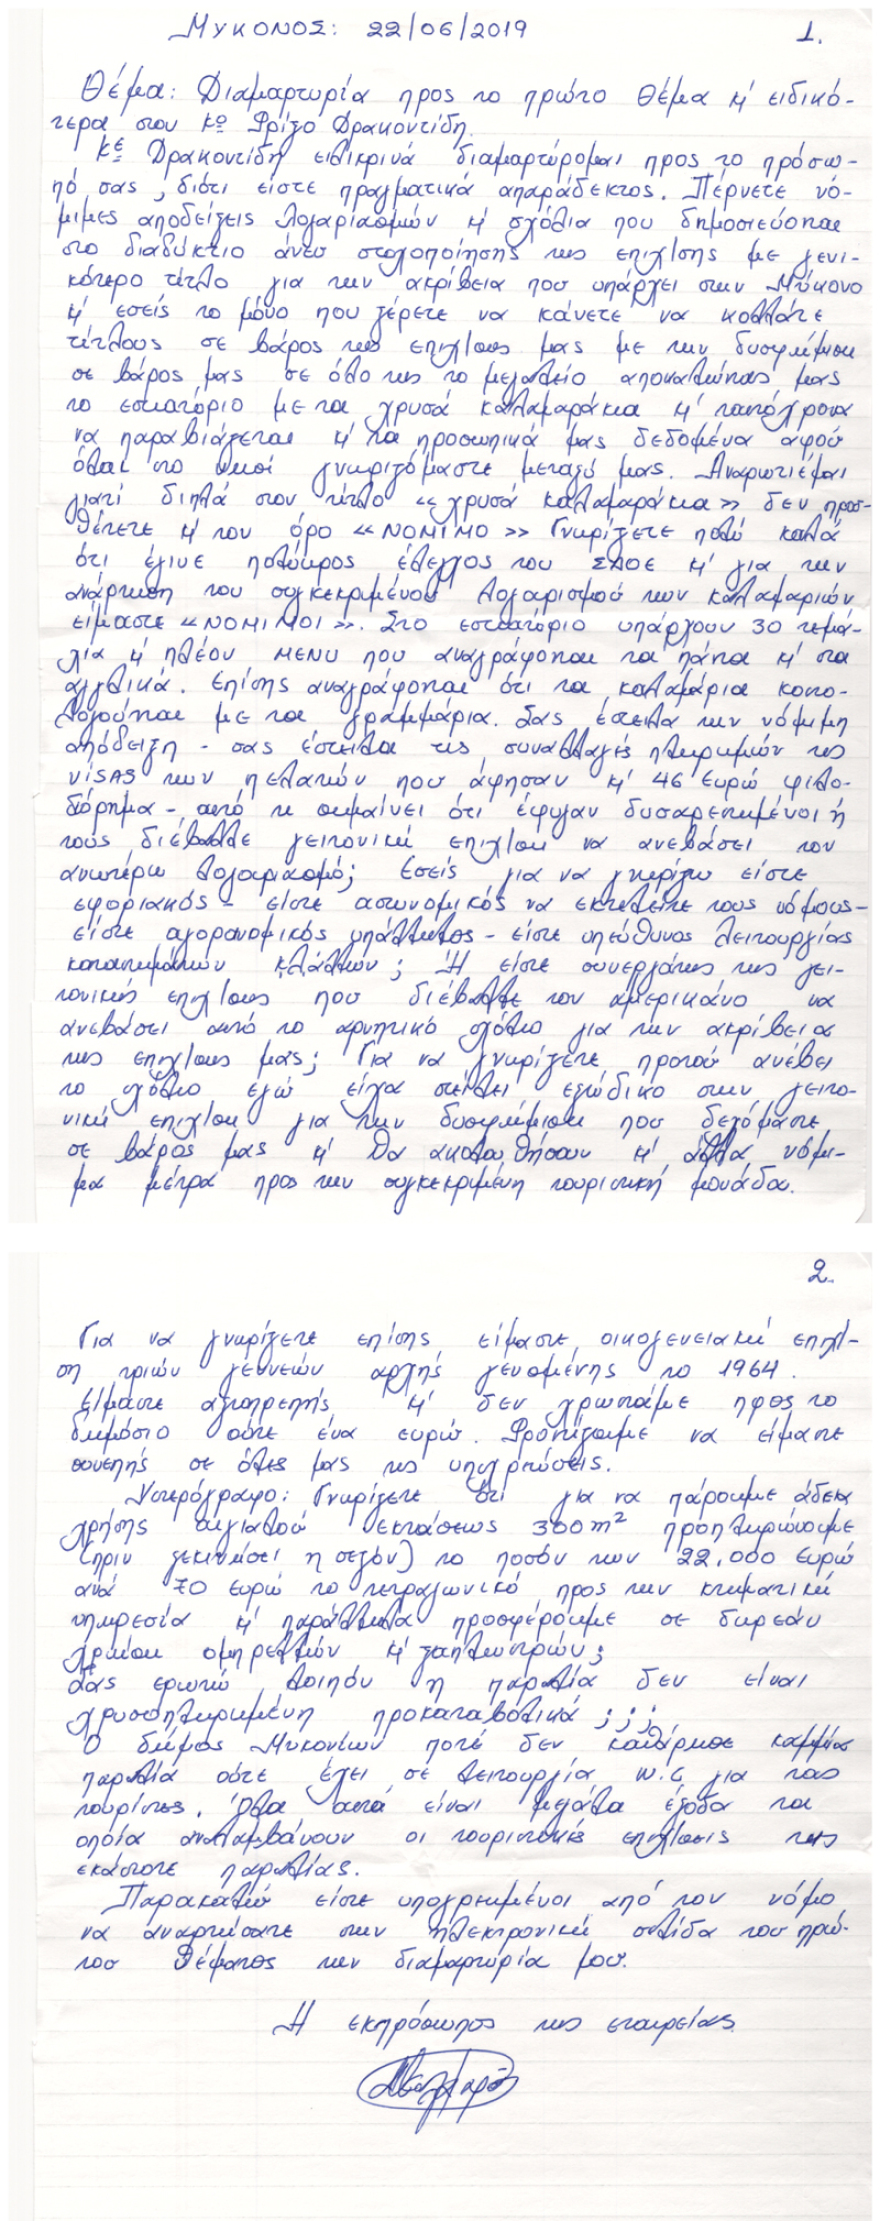 ΜΥΚΟΝΟΣ: 22/06/2019 1.
Θέμα: Διαμαρτυρία προς το πρώτο θέμα κ' ειδικό-
τερα στον Κο Φρίξο Δρακοντίδη.
Κε Δρακοντίδη ειλικρινά διαμαρτύρομαι προς το πρόσω-
πό σας, διότι είστε πραγματικά απαράδεκτος. Πέρνετε νό-
μιμες αποδείξεις λογαριασμών κ' σχόλια που δημοσιεύονται
στο διαδύκτιο άνευ στοχοποίησης της επιχ/σης με γενι-
κότερο τίτλο για την ακρίβεια που υπάρχει στην Μύκονο
κ' εσείς το μόνο που ξέρετε να κάνετε να κολλάτε
τίτλους σε βάρος της επιχ/σης μας με την δυσφήμιση
σε βάρος μας σε όλο της το μεγαλείο αποκαλώντας μας
το εστιατόριο με τα χρυσά καλαμαράκια κ' ταυτόχρονα
να παραβιάζεται κ' τα προσωπικά μας δεδομένα αφού
όλοι στο νησί γνωριζόμαστε μεταξύ μας. Αναρωτιέμαι
γιατί διπλά στον τίτλο «χρυσά καλαμαράκια» δεν προσ-
θέτετε κ' τον όρο «ΝΟΜΙΜΟ» Γνωρίζετε πολύ καλά
ότι έγινε πολύωρος έλεγχος του ΣΔΟΕ κ' για την
ανάρτηση του συγκεκριμένου λογαρισμού των καλαμαριών
είμαστε «ΝΟΜΙΜΟΙ». Στο εστιατόριο υπάρχουν 30 τεμά-
χια κ' πλέον ΜΕΝU που αναγράφονται τα πάντα κ' στα
αγγλικά. Επίσης αναγράφονται ότι τα καλαμάρια κοστο-
λογούνται με τα γραμμάρια. Σας έστειλα την νόμιμη
απόδειξη - σας έστειλα τις συναλλαγές πληρωμών της
VISAS των πελατών που άφησαν κ' 46 Ευρώ φιλο-
δώρημα - αυτό τι σημαίνει ότι έφυγαν δυσαρεστημένοι ή
τους διέβαλλε γειτονική επιχ/ση να ανεβάσει τον
ανωτέρω λογαριασμό; Εσείς για να γνωρίζω είστε
εφοριακός - είστε αστυνομικός να εκτελείτε τους νόμους -
είστε αγορανομικός υπάλληλος - είστε υπεύθυνος λειτουργίας
καταστημάτων κλάδων; Ή είστε συνεργάτης της γει-
τονικής επιχ/σης που διέβαλλε τον αμερικάνο να
ανεβάσει αυτό το αρνητικό σχόλιο για την ακρίβεια
της επιχ/σης μας; Για να γνωρίζετε προτού ανέβει
το σχόλιο εγώ είχα στείλει εξώδικο στην γειτο-
νική επιχ/ση για την δυσφήμιση που δεχόμαστε
σε βάρος μας κ' θα ακολουθήσουν κ' άλλα νόμι-
μα μέτρα προς την συγκεκριμένη τουριστική μονάδα.
2.
Για να γνωρίζετε επίσης είμαστε οικογενειακή επιχ/-
ση τριών γεννεών αρχής γενομένης το 1964.
Είμαστε αξιοπρεπής κ' δεν χρωστάμε προς το
δημόσιο ούτε ένα ευρώ. Φροντίζουμε να είμαστε
συνεπής σε όλες μας τις υποχρεώσεις.
Υστερόγραφο: Γνωρίζετε ότι για να πάρουμε άδεια
χρήσης αιγιαλού εκτάσεως 300m² προπληρώνουμε
(πριν ξεκινήσει η σεζόν) το ποσόν των 22.000 Ευρώ
ανά 70 ευρώ το τετραγωνικό προς την κτηματική
υπηρεσία κ' παράλληλα προσφέρουμε σε δωρεάν
χρήση ομπρελλών κ' ξαπλωστρών;
Σας ερωτώ λοιπόν η παραλία δεν είναι
χρυσοπληρωμένη προκαταβολικά ; ; ;
Ο δήμος Μυκονίων ποτέ δεν καθάρισε καμμία
παραλία ούτε έχει σε λειτουργία W.C για τους
τουρίστες. Όλα αυτά είναι μεγάλα έξοδα τα
οποία αναλαμβάνουν οι τουριστικές επιχ/σεις της
εκάστοτε παραλίας.
Παρακαλώ είστε υποχρεωμένοι από τον νόμο
να αναρτήσατε στην ηλεκτρονική σελίδα του πρώ-
του θέματος την διαμαρτυρία μου.
Η εκπρόσωπος της εταιρείας